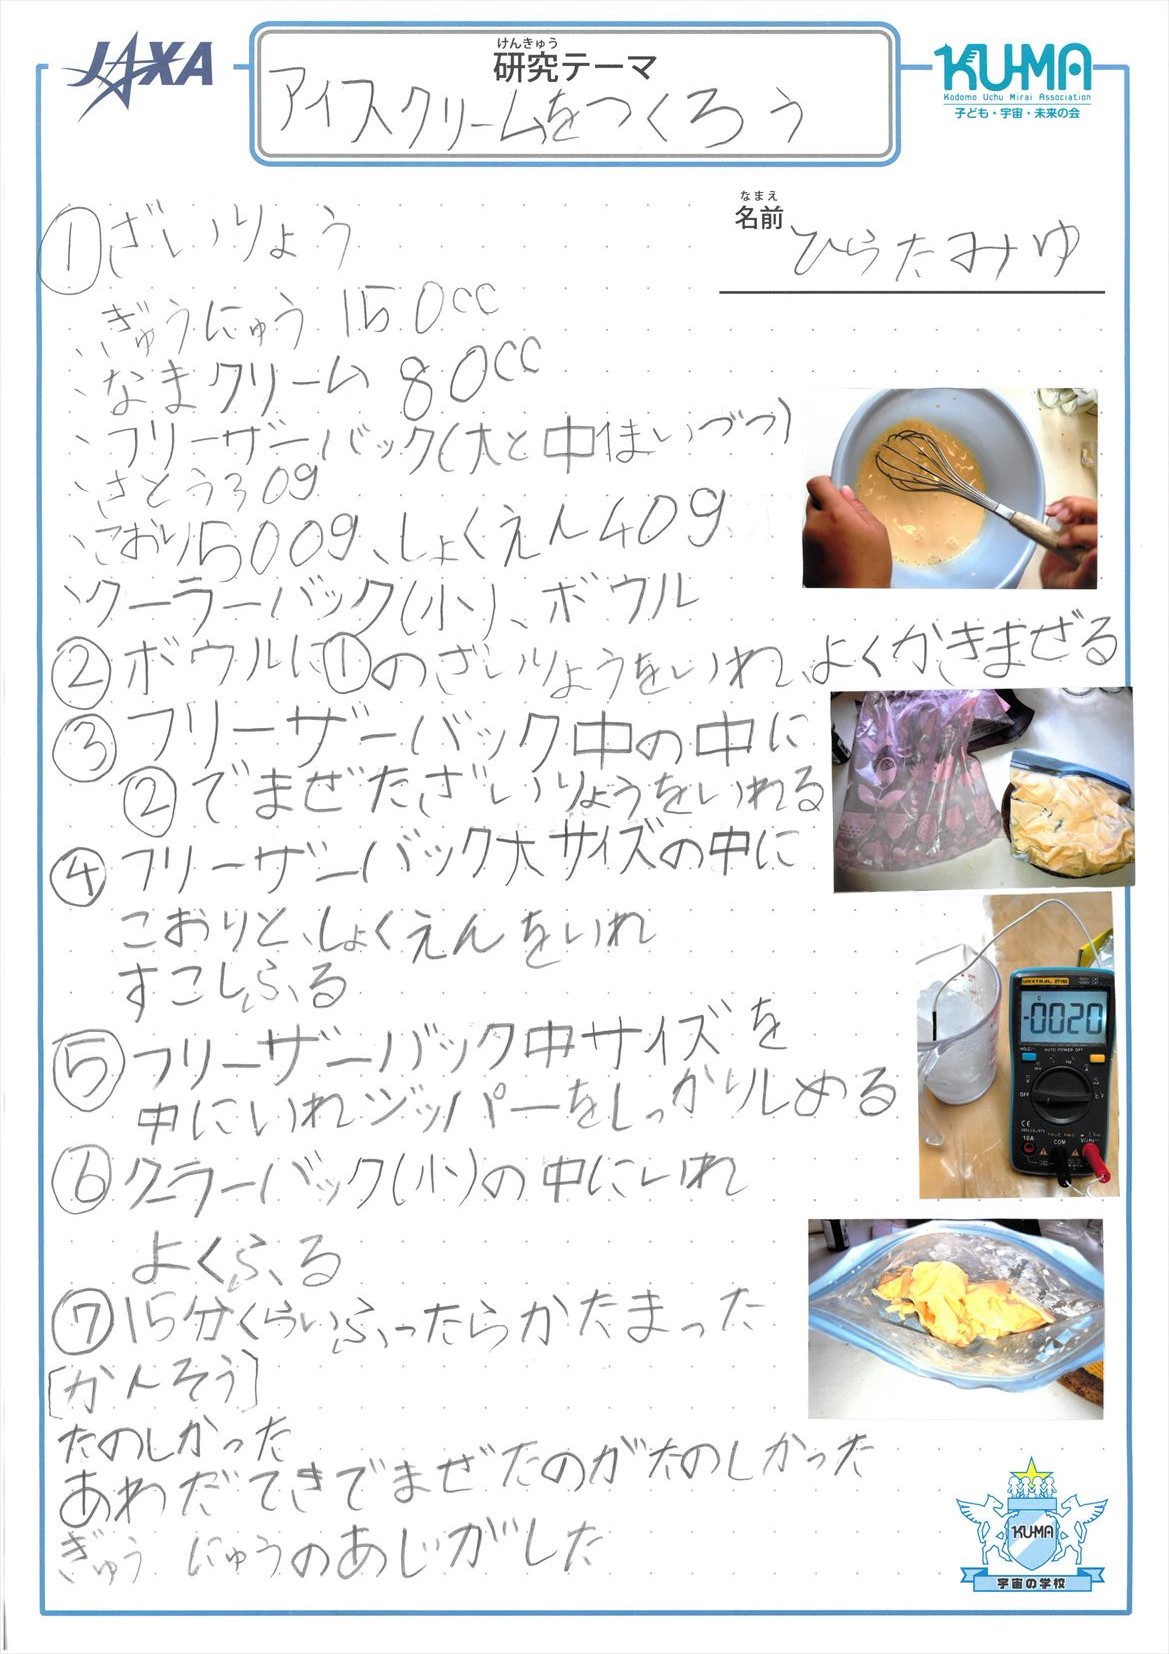 JAXA
けんきゅう
研究テーマ
アイスクリームをつくろう
KU-MA
Kodomo Uchu Mirai Association
子ども・宇宙・未来の会
なまえ
名前 ひらたみゆ
①ざいりょう
、ぎゅうにゅう 150cc
、なまクリーム 80cc
、フリーザーバック(大と中1まいづつ)
、さとう30g
、こおり500g、しょくえん40g
、クーラーバック(小)、ボウル
②ボウルに①のざいりょうをいれ、よくかきまぜる
③フリーザーバック中の中に
②でまぜたざいりょうをいれる
④フリーザーバック大サイズの中に
こおりと、しょくえんをいれ
すこしふる
⑤フリーザーバック中サイズを
中にいれジッパーをしっかりしめる
⑥クーラーバック(小)の中にいれ
よくふる
⑦15分くらいふったらかたまった
[かんそう]
たのしかった
あわだてきでまぜたのがたのしかった
ぎゅうにゅうのあじがした
-0020
AUTO POWER OFF
OFF
CE
10A
COM
KU-MA
宇宙の学校